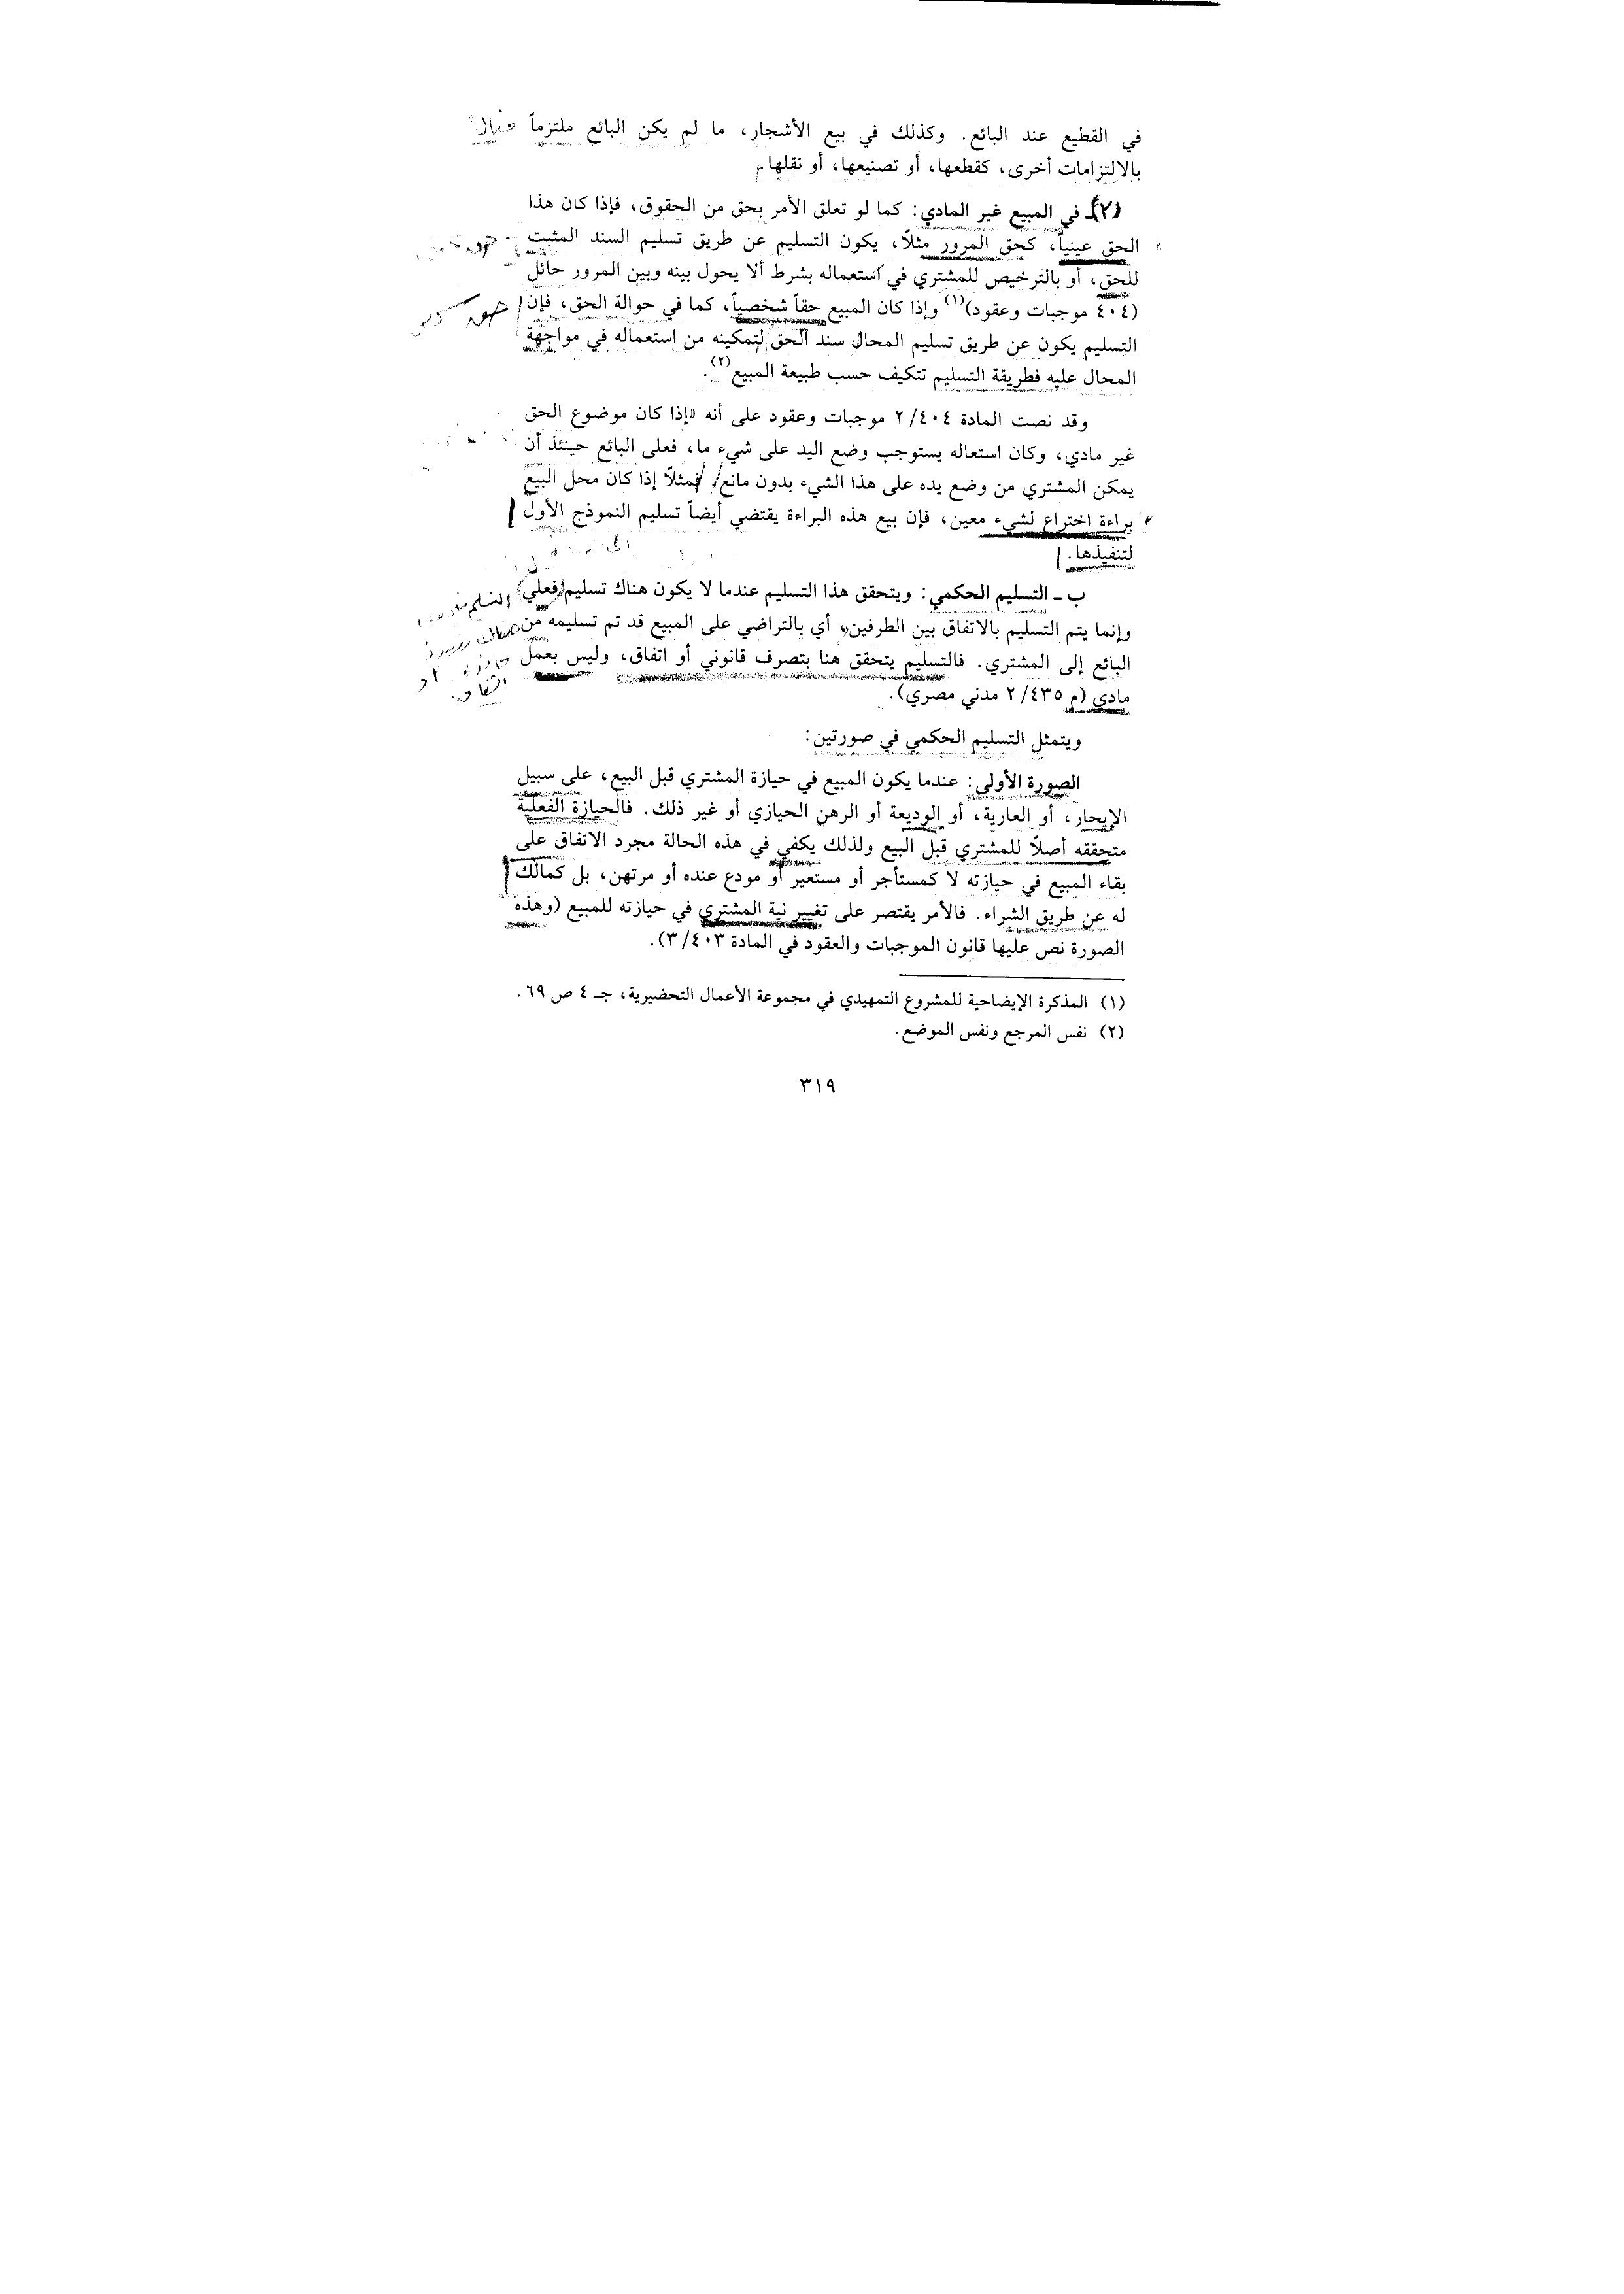 في القطيع عند البائع. وكذلك في بيع الأشجار، ما لم يكن البائع ملتزماً
بالالتزامات أخرى، كقطعها، أو تصنيعها، أو نقلها.
(٢) ـ في المبيع غير المادي: كما لو تعلق الأمر بحق من الحقوق، فإذا كان هذا
الحق عينياً، كحق المرور مثلاً، يكون التسليم عن طريق تسليم السند المثبت
للحق، أو بالترخيص للمشتري في استعماله بشرط ألا يحول بينه وبين المرور حائل
(٤٠٤ موجبات وعقود)(١) وإذا كان المبيع حقاً شخصياً، كما في حوالة الحق، فإن
التسليم يكون عن طريق تسليم المحال سند الحق لتمكينه من استعماله في مواجهة
المحال عليه فطريقة التسليم تتكيف حسب طبيعة المبيع(٢).
وقد نصت المادة ٢/٤٠٤ موجبات وعقود على أنه «إذا كان موضوع الحق
غير مادي، وكان استعاله يستوجب وضع اليد على شيء ما، فعلى البائع حينئذ أن
يمكن المشتري من وضع يده على هذا الشيء بدون مانع، فمثلاً إذا كان محل البيع
براءة اختراع لشيء معين، فإن بيع هذه البراءة يقتضي أيضاً تسليم النموذج الأول
لتنفيذها.
ب ـ التسليم الحكمي: ويتحقق هذا التسليم عندما لا يكون هناك تسليم فعلي
وإنما يتم التسليم بالاتفاق بين الطرفين، أي بالتراضي على المبيع قد تم تسليمه من
البائع إلى المشتري. فالتسليم يتحقق هنا بتصرف قانوني أو اتفاق، وليس بعمل
مادي (م ٢/٤٣٥ مدني مصري).
ويتمثل التسليم الحكمي في صورتين:
الصورة الأولى: عندما يكون المبيع في حيازة المشتري قبل البيع، على سبيل
الإيجار، أو العارية، أو الوديعة أو الرهن الحيازي أو غير ذلك. فالحيازة الفعلية
متحققه أصلاً للمشتري قبل البيع ولذلك يكفي في هذه الحالة مجرد الاتفاق على
بقاء المبيع في حيازته لا كمستأجر أو مستعير أو مودع عنده أو مرتهن، بل كمالك
له عن طريق الشراء. فالأمر يقتصر على تغيير نية المشتري في حيازته للمبيع (وهذه
الصورة نص عليها قانون الموجبات والعقود في المادة ٣/٤٠٣).
(١) المذكرة الإيضاحية للمشروع التمهيدي في مجموعة الأعمال التحضيرية، جـ ٤ ص ٦٩.
(٢) نفس المرجع ونفس الموضع.
٣١٩